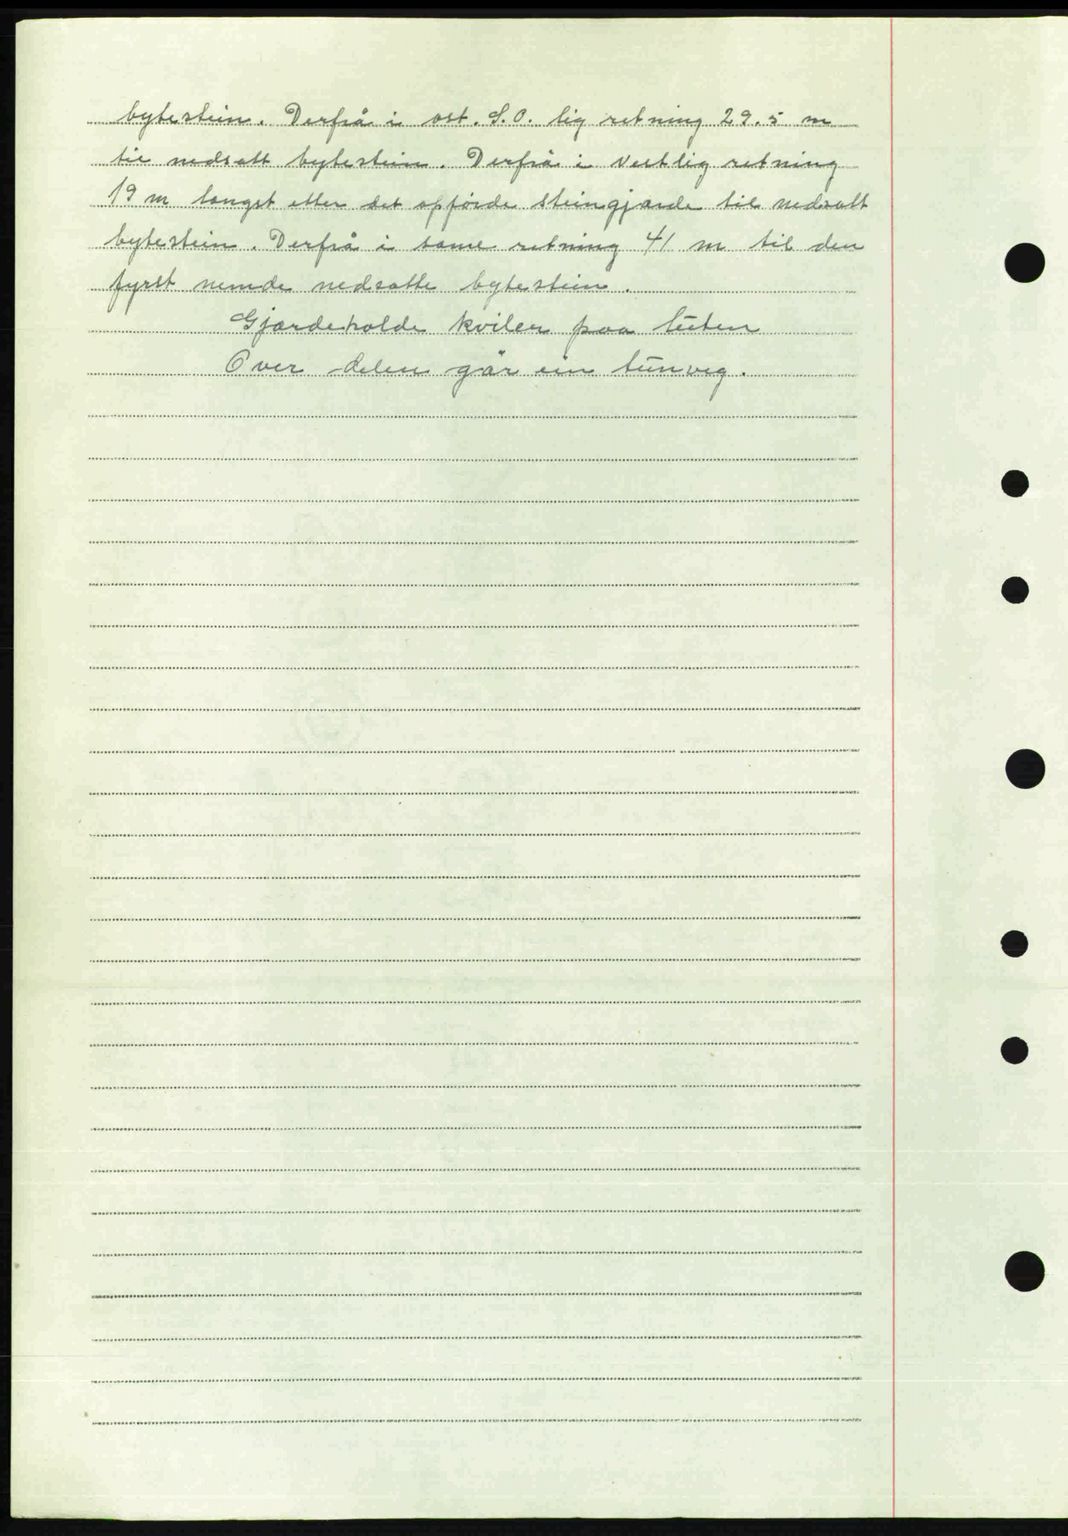 bytestein. Derfrå i ost. S.O. lig retning 29.5 m
til nedsatt bytestein. Derfrå i vestlig retning
19 m langst etter det opförde steingjærde til nedsatt
bytestein. Derfrå i same retning 41 m til den
fyrst nemde nedsatte bytestein.
Gjærdeholde kviler paa luten
Over delen går ein tunveg.